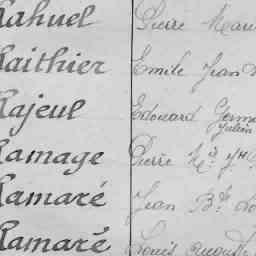 Rahuel Pierre Marie
Raithier Emile Jean
Rajeul Edouard Germ
Julien
Ramage Pierre M.ie
Ramaré Jean B.te
Ramaré Louis Auguste